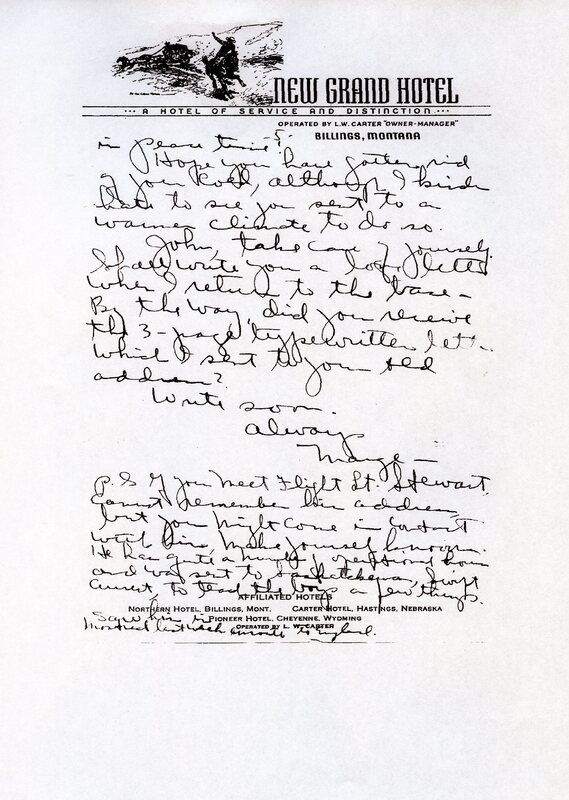 NEW GRAND HOTEL
··· A HOTEL OF SERVICE AND DISTINCTION ···
OPERATED BY L.W. CARTER "OWNER-MANAGER"
BILLINGS, MONTANA
5.
in peace time.
Hope you have gotten rid
of your cold, although I kinda
hate to see you sent to a
warmer climate to do so.
John, take care of yourself.
Shall write you a long letter
when I return to the base -
By the way, did you receive
the 3-page typewritten letter
which I sent to your old
address?
Write soon.
Always
Marge -
P.S. If you meet Flight Lt. Stewart,
cannot remember his address,
but you might come in contact
with him, make yourself known.
He has quite a number of operational hours
and was sent to Saskatchewan, Swift
Current to teach the boys a few things.
AFFILIATED HOTELS
NORTHERN HOTEL, BILLINGS, MONT. CARTER HOTEL, HASTINGS, NEBRASKA
Saw him in
PIONEER HOTEL, CHEYENNE, WYOMING
Montreal last week enroute to England.
OPERATED BY L. W. CARTER